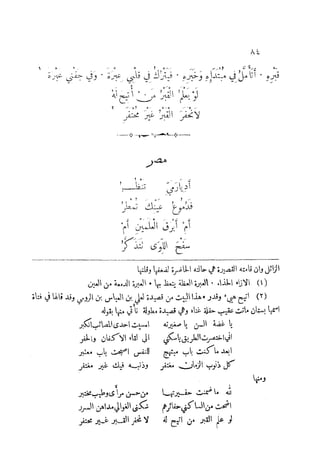 ٨٤
قبره . أتأمل في مبتداه وخبره . فيترك في قلبي عبرة . وفي جفني عبره
لو يعلم القبر من أتيح له
لانحفر القبر غير محتفر
مصر
أديارمي تنظر
فدموع عينك تمطر
أم أبرق العلمين أم
سفح اللوى تتذكر
الزائل وان قامته القصيرة هي حالته الحاضرة لضعفها وقلتها
(١) الازاء الحذاء . العبرة العظة يتعظ بها . العبرة الدمعة من العين
(٢) اتيح هيء وقدر . هذا البيت من قصيدة لعلي بن العباس بن الرومي وقد قالها في فتاة
اسمها بستان ماتت عقيب حفلة غناء وهي قصيدة مطولة نأتي منها بقوله
يا غضة السن يا صغيرته امسيت احدى المصائب الكبر
أنى اختصرت الطريق يا سكني الى لقاء الاكفان والحفر
ابعد ما كنت باب مبتهج للنفس اصبحت باب معتبر
كل ذنوب الزمان مغتفر وذنبه فيك غير مغتفر
ومنها
لله ما ضمنت حفيرتها من حسن مرأى وطيب مختبر
اضحت من الساكني حفائرهم سكنى الغوالي مداهن السرر
لو علم القبر من اتيح له لانحفر القبر غير محتفر